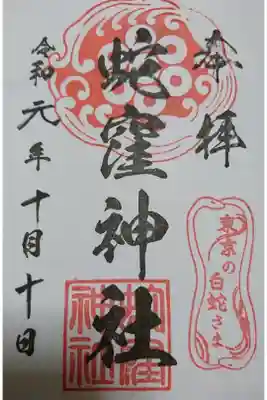 奉拝
東京の白蛇さま
蛇窪神社
蛇窪
神社
令和元年十月十日